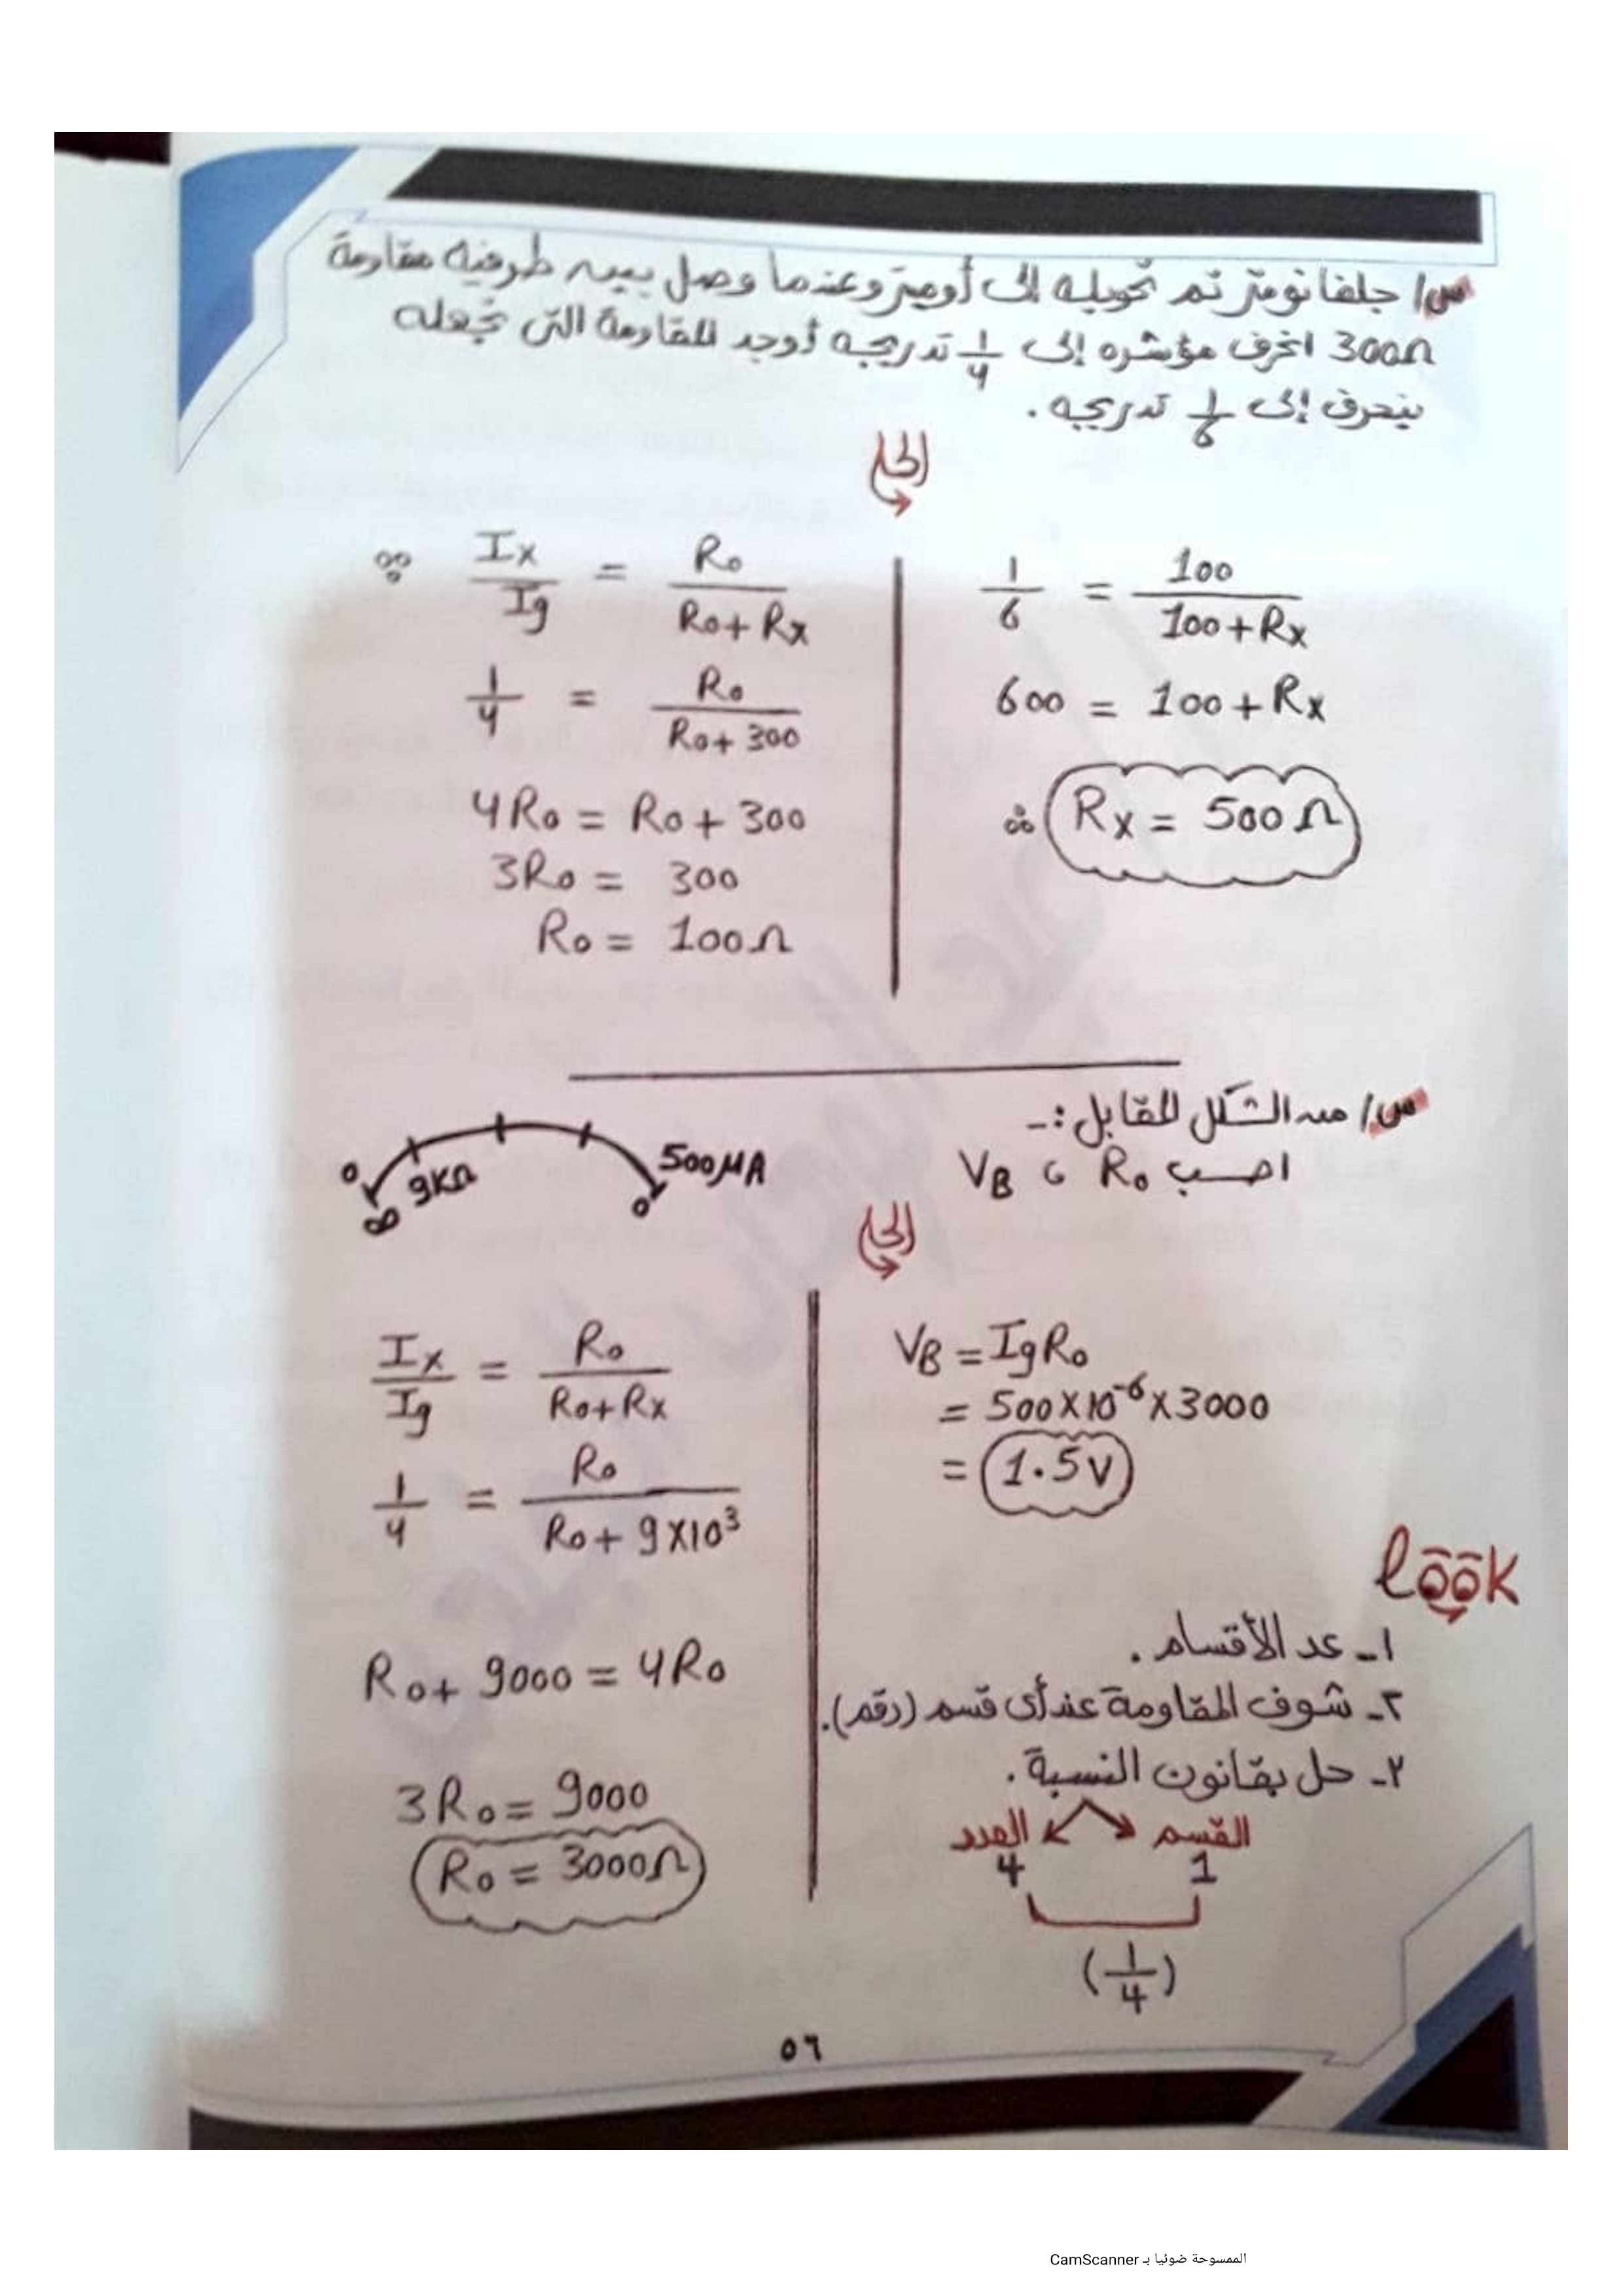 س/ جلفانومتر تم تحويله إلى أوميتر وعندما وصل بين طرفيه مقاومة
300Ω انحرف مؤشره إلى 1/4 تدريجه أوجد المقاومة التى تجعله
ينحرف إلى 1/6 تدريجه .
الحل
∵ Ix/Ig = Ro/(Ro+Rx)
1/4 = Ro/(Ro+300)
4Ro = Ro + 300
3Ro = 300
Ro = 100Ω
1/6 = 100/(100+Rx)
600 = 100+Rx
∴ Rx = 500Ω
س/ من الشكل المقابل :-
احسب Ro ، VB
0
∞
9KΩ
500μA
0
الحل
Ix/Ig = Ro/(Ro+Rx)
1/4 = Ro/(Ro+9x10³)
Ro+ 9000 = 4Ro
3Ro = 9000
Ro = 3000Ω
VB = IgRo
= 500x10⁻⁶x3000
= 1.5V
look
١- عد الأقسام .
٢- شوف المقاومة عند أى قسم (رقم).
٢- حل بقانون النسبة .
القسم العدد
1 4
(1/4)
٥٦
الممسوحة ضوئيا بـ CamScanner